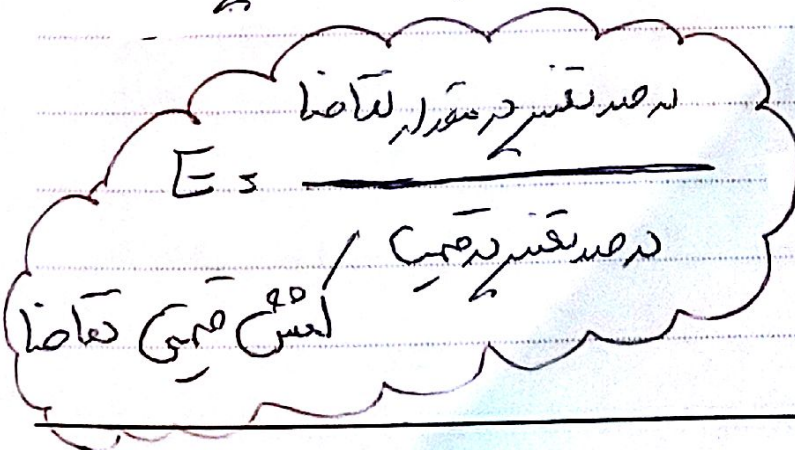 درصد تغییر در مقدار تقاضا
E =
درصد تغییر در قیمت
کشش قیمتی تقاضا